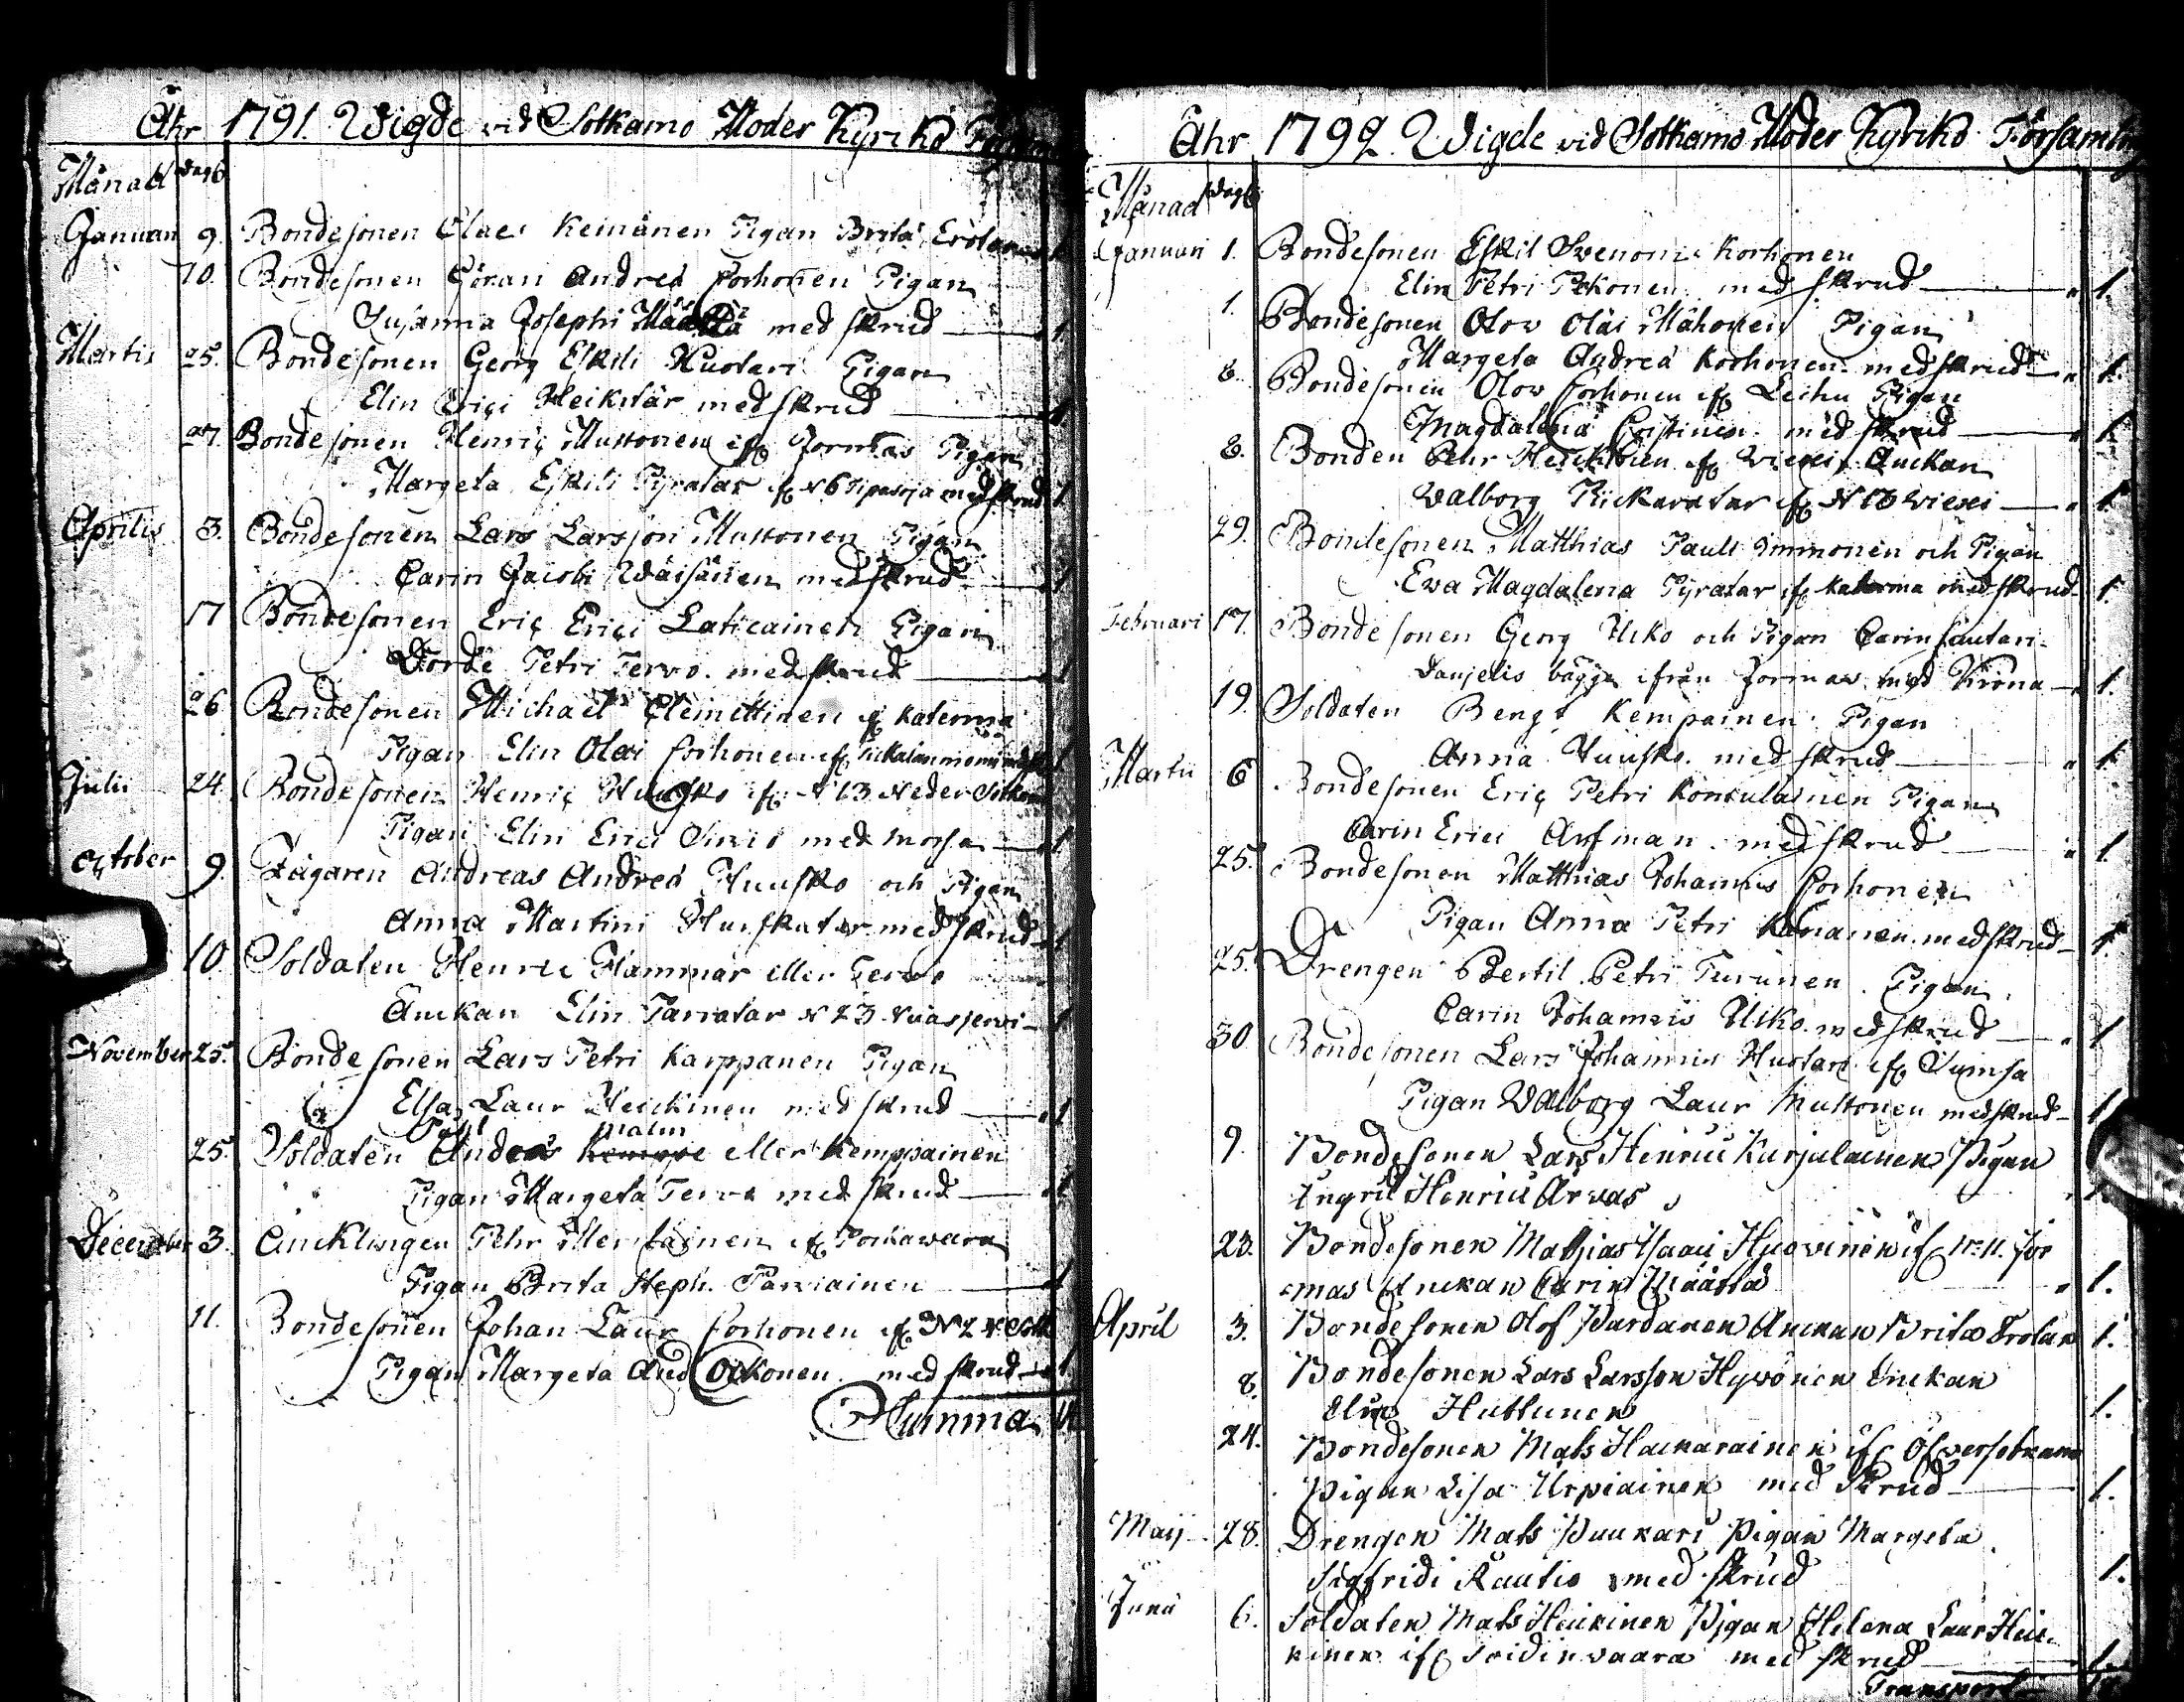 Åhr 1791. Wigde vid Sotkamo Moder Kyrko
Månad dag
Januari 9. Bondesonen Olaei Keinänen Pigan Brita
10. Bondesonen Göran Andreæ Corhonen Pigan
Susanna Josephi med skrud 1
Martii 25. Bondesonen Georg Eskili Huotari Pigan
Elin Erici Heikitär med skrud 1.
27. Bondesonen Henric Mustonen if Jormas Pigan
Margeta Eskili Pyratar if N 6 med skrud 1
Aprilis 3. Bondesonen Lars Larsson Mustonen Pigan
Carin Jacobi Wäisänen med skrud 1
17 Bondesonen Eric Erici Laticainen Pigan
Dorde Petri Tervo. med skrud 1
26 Bondesonen Michael Clemettinen if Katerma
Pigan Elin Olai Corhonen if 1
Julii 24. Bondesonen Henric Huusko if N 13 Neder Sotkamo
Pigan Elin Erici med mössa 1
October 9. Andreas Andreæ Huusko och Pigan
Anna Martini Huuskatar med skrud 1
10 Soldaten Henric Hammar eller Tervo
Änckan Elin Tarvatar N 23 Nuasjervi 1
November 25. Bondesonen Lars Petri Karppanen Pigan
Elsa Laur Heickinen med skrud 1
Malm
25. Soldaten eller Kemppainen
Pigan Margeta Tervo med skrud 1
December 3. Äncklingen Pehr if
Pigan Brita Steph. Parviainen 1
11. Bondesonen Johan Laur Corhonen if N 2 N Sotk
Pigan Margeta And Ockonen. med skrud 1.
Summa
Åhr 1792. Wigde vid Sotkamo Moder Kyrko Församling
Månad dag
Januari 1. Bondesonen Eskil Svenonis Korhonen
Elin Petri Pekonen. med skrud 1.
1. Bondesonen Olov Olai Mähönen Pigan
Margeta Andreæ Korhonen med skrud 1.
6. Bondesonen Olov Corhonen if Leihu Pigan
Magdalena med skrud 1.
8. Bonden Pehr Heickinen if Wiexi Änckan
Walborg if N 13 Wiexi 1
29. Bondesonen Matthias Pauli Immonen och Pigan
Ewa Magdalena Pyratar if Katerma med skrud 1.
Februari 17. Bondesonen Georg Uko och Pigan Carin
Danjelis bägge ifrån Jormas med Krona 1.
19. Soldaten Bengt Kempainen Pigan
Anna Huusko. med skrud 1.
Martii 6 Bondesonen Eric Petri Pigan
Carin Erici Arfman. med skrud 1.
25. Bondesonen Matthias Johannis Corhonen
Pigan Anna Petri med skrud 1.
25. Drengen Bertil Petri Turunen. Pigan
Carin Johannis med skrud 1
30. Bondesonen Lars Johannis Huotari if
Pigan Walborg Laur Mustonen med skrud 1
9. Bondesonen Lars Henrici Kurjalainen Pigan
Ingrid Henrici Arvas 1.
23. Bondesonen Mathias Isaaci if No 11. Jor
mas Änckan Carin Määttä 1.
April 3. Bondesonen Olof Pardanen Änckan Brita 1.
8. Bondesonen Lars Larsson Hyvönen Änckan
Huttunen 1.
24. Bondesonen Mats Hackarainen if Öfversotkamo
Pigan Lisa Urpiainen med Skrud 1.
Maij 28. Drengen Mats Puukari Pigan Margeta
Sigfridi Rautio med skrud 1.
Junii 6. Soldaten Mats Heickinen Pigan Helena Laur Heic-
kinen if Soidinvaara med skrud 1.
Transport